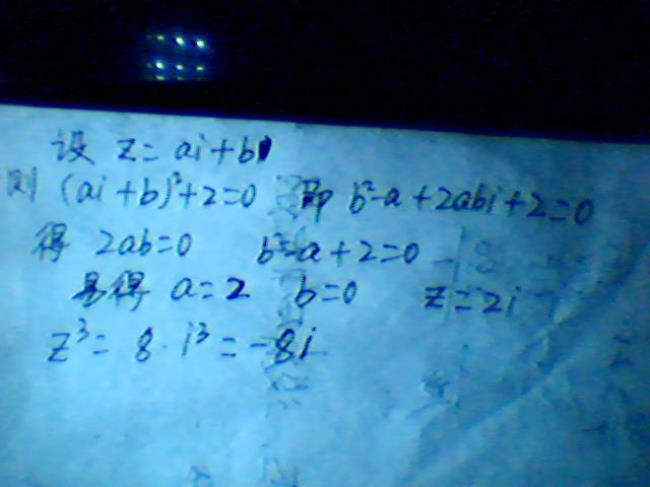 设 z=ai+b
则 (ai+b)²+2=0 即 b²-a+2abi+2=0
得 2ab=0 b²-a+2=0
易得 a=2 b=0 z=2i
z³=8·i³=-8i